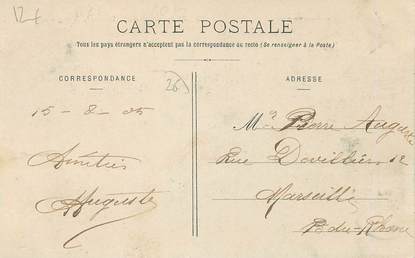 12€
CARTE POSTALE
Tous les pays étrangers n'acceptent pas la correspondance au recto (Se renseigner à la Poste)
CORRESPONDANCE
ADRESSE
26
15 - 8 - 05
Amitiés
Auguste
Pierre
Rue 12
Marseille
B. du Rhône